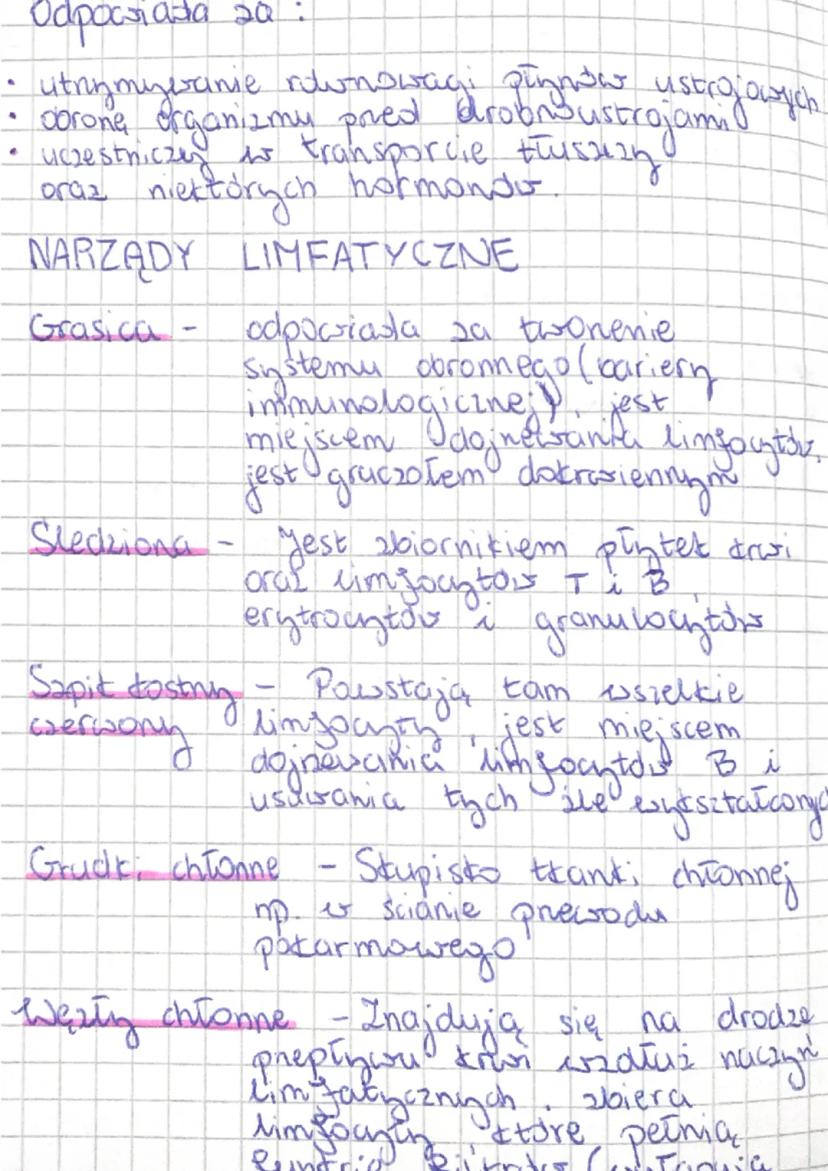 Odpowiada za :
• utrzymywanie równowagi płynów ustrojowych
• obronę organizmu przed drobnoustrojami
• uczestniczy w transporcie tłuszczy
oraz niektórych hormonów.
NARZĄDY LIMFATYCZNE
Grasica - odpowiada za tworzenie
systemu obronnego (bariery
immunologicznej), jest
miejscem dojrzewania limfocytów,
jest gruczołem dokrewnym
Śledziona - Jest zbiornikiem płytek krwi
oraz limfocytów T i B,
erytrocytów i granulocytów
Szpik kostny - Powstają tam wszelkie
czerwony limfocyty, jest miejscem
dojrzewania limfocytów B i
usuwania tych źle wykształconyc
Grudki chłonne - Skupisko tkanki chłonnej
np. w ścianie przewodu
pokarmowego
Węzły chłonne - Znajdują się na drodze
przepływu krwi wzdłuż naczyń
limfatycznych, zbiera
limfocyty które pełnią